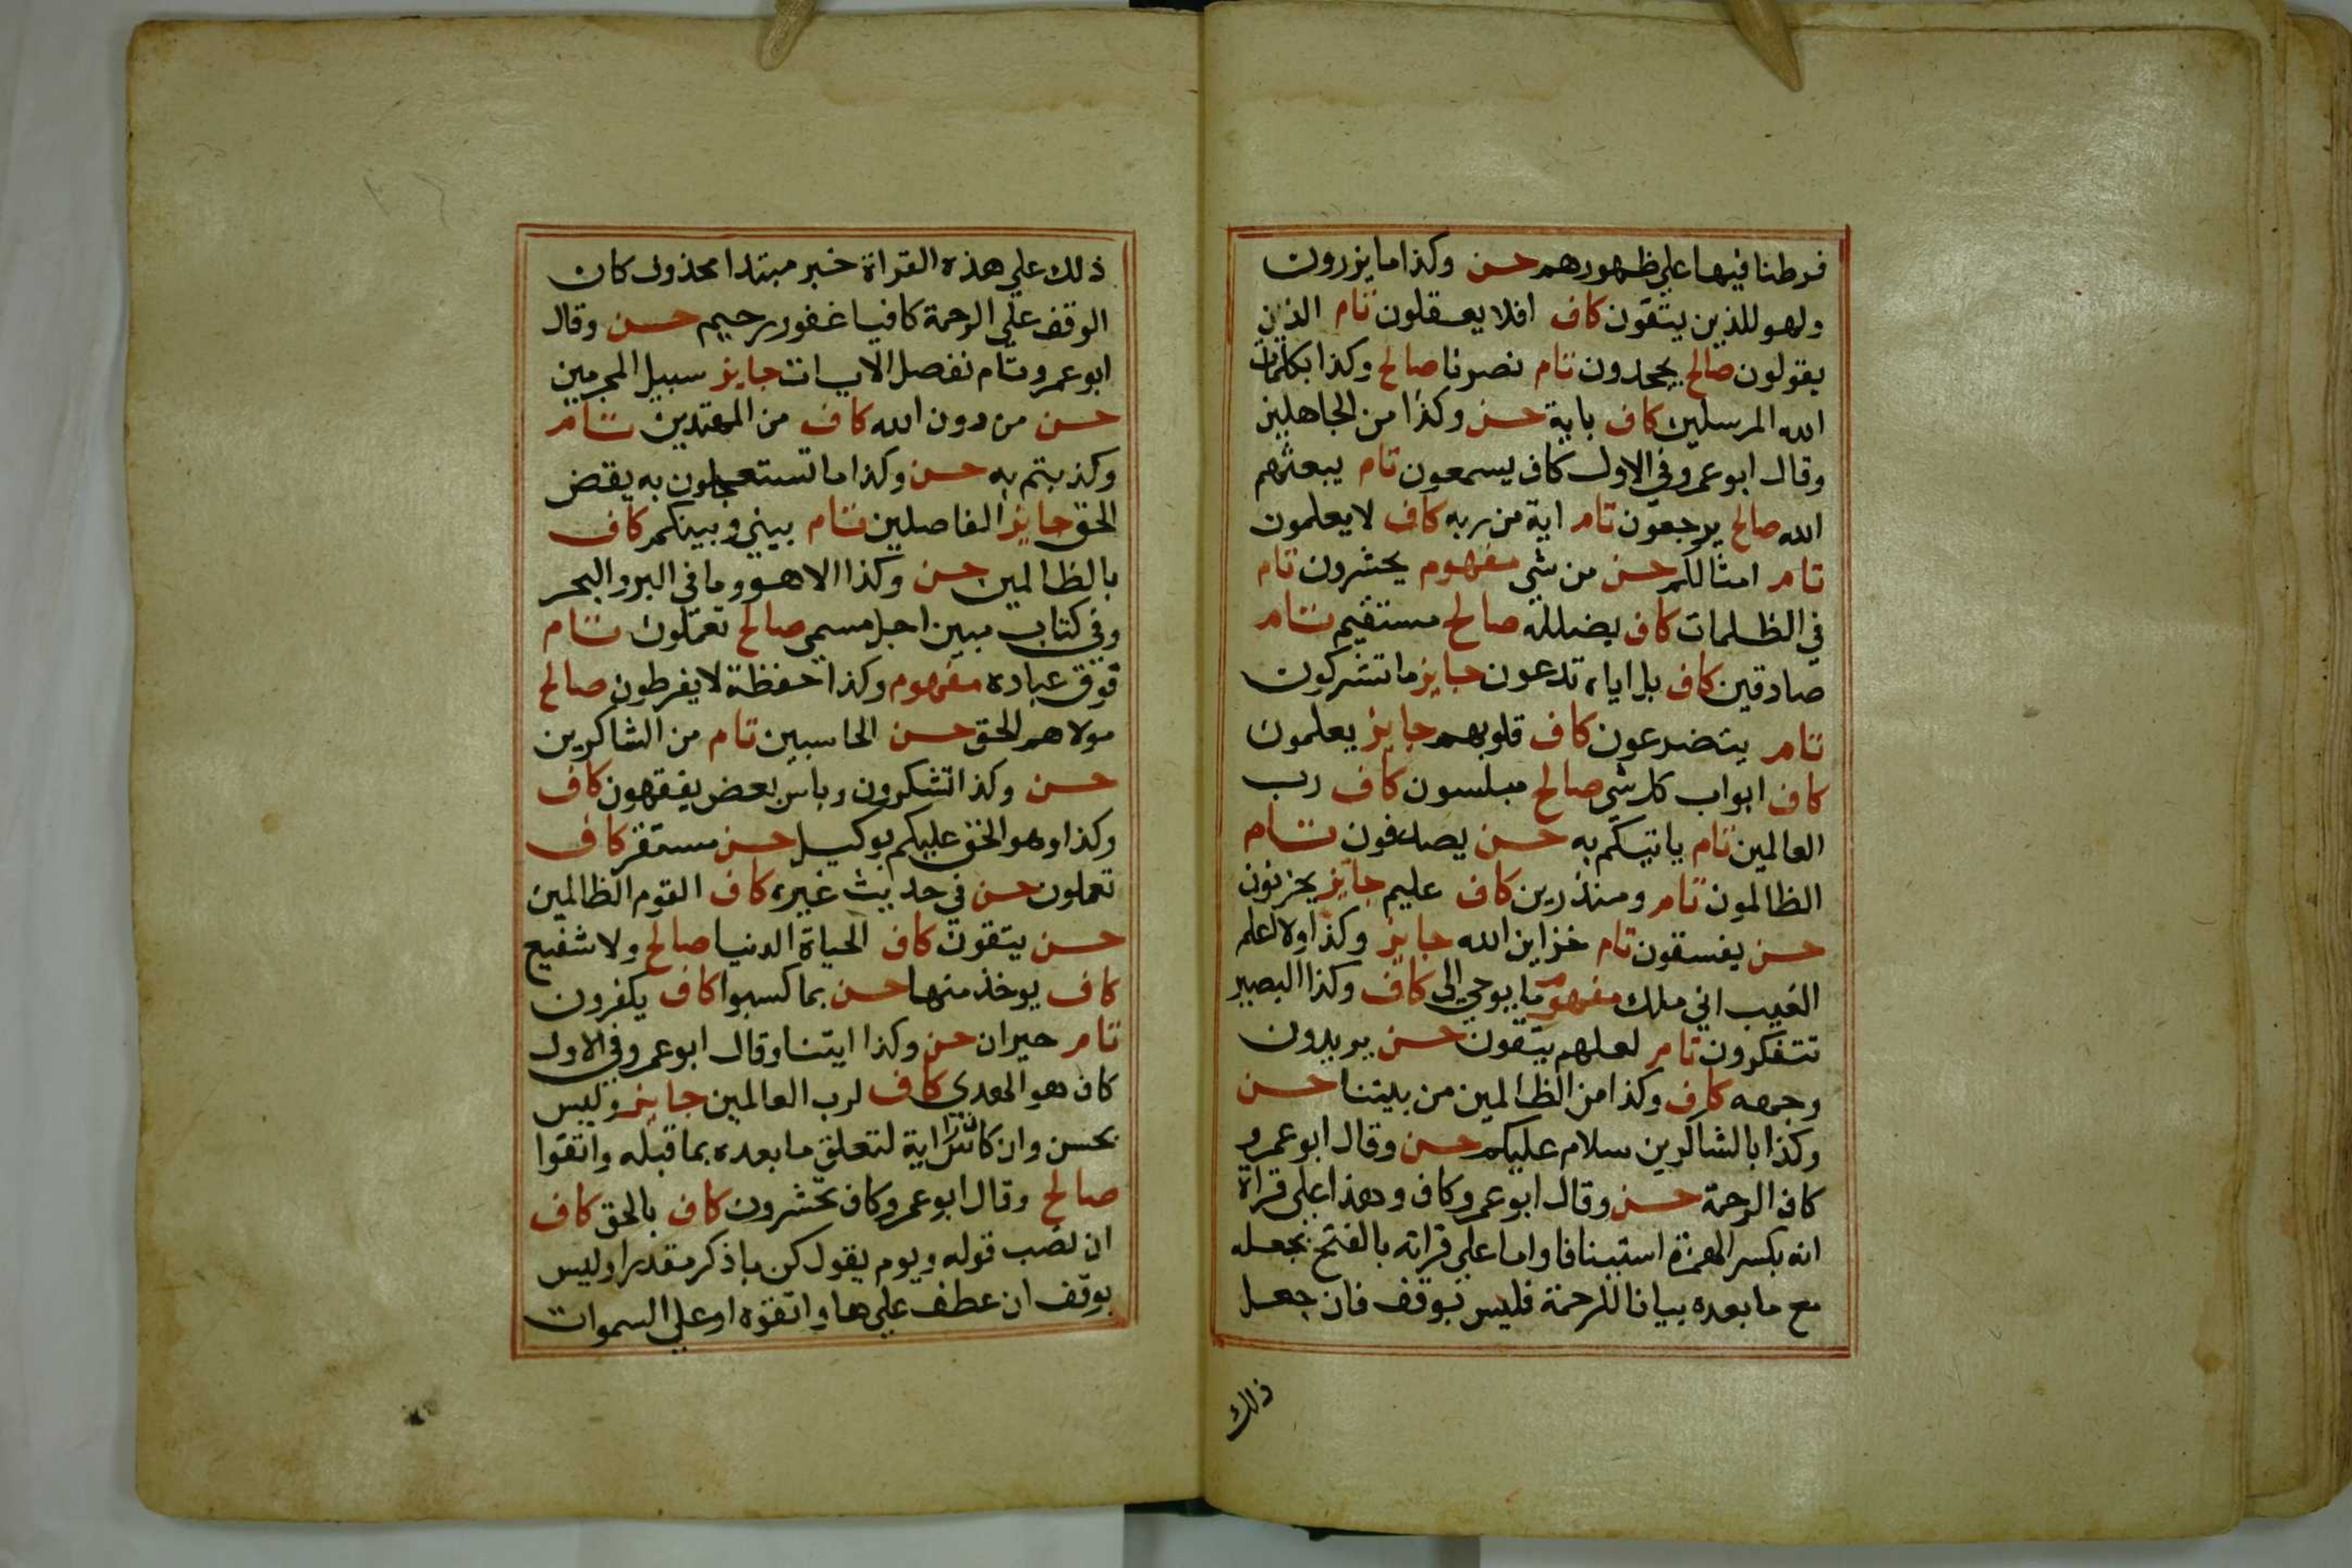 فرطنا فيها علي ظهورهم حسن وكذا ما يزرون
ولهو للذين يتقون كاف افلا يعقلون تام الذين
يقولون صالح يجحدون تام نصرنا صالح وكذا بكلمات
الله المرسلين كاف باية حسن وكذا من الجاهلين
وقال ابو عمرو في الاول كاف يسمعون تام يبعثهم
الله صالح يرجعون تام اية من ربه كاف لا يعلمون
تام امثالكم حسن من شي مفهوم يحشرون تام
في الظلمات كاف يضلله صالح مستقيم تام
صادقين كاف بل اياه تدعون جايز ما تشركون
تام يتضرعون كاف قلوبهم جايز يعلمون
كاف ابواب كل شي صالح مبلسون كاف رب
العالمين تام ياتيكم به حسن يصدفون تام
الظالمون تام ومنذرين كاف عليم جايز يحزنون
حسن يفسقون تام خزاين الله جايز وكذا ولا اعلم
الغيب اني ملك مفهوم ما يوحي الي كاف وكذا البصير
تتفكرون تام لعلهم يتقون حسن يريدون
وجهه كاف وكذا من الظالمين من بيننا حسن
وكذا بالشاكرين سلام عليكم حسن وقال ابو عمرو
كاف الرحمة حسن وقال ابو عمرو كاف وهذا علي قراة
انه بكسر الهمزة استينافا واما علي قراته بالفتح بجعله
مع ما بعده بيانا للرحمة فليس بوقف فان جعل
ذلك
ذلك علي هذه القراة خبر مبتدا محذوف كان
الوقف علي الرحمة كافيا غفور رحيم حسن وقال
ابو عمرو تام نفصل الايات جايز سبيل المجرمين
حسن من دون الله كاف من المهتدين تام
وكذبتم به حسن وكذا ما تستعجلون به يقض
الحق جايز الفاصلين تام بيني وبينكم كاف
بالظالمين حسن وكذا الا هو وما في البر والبحر
وفي كتاب مبين اجل مسمي صالح تعملون تام
فوق عباده مفهوم وكذا حفظة لا يفرطون صالح
مولاهم الحق حسن الحاسبين تام من الشاكرين
حسن وكذا تشكرون وباس بعض يفقهون كاف
وكذا وهو الحق عليكم بوكيل حسن مستقر كاف
تعملون حسن في حديث غيره كاف القوم الظالمين
حسن يتقون كاف الحياة الدنيا صالح ولا شفيع
كاف يوخذ منها حسن بما كسبوا كاف يكفرون
تام حيران حسن وكذا ايتنا وقال ابو عمرو في الاول
كاف هو الهدي كاف لرب العالمين جايز وليس
بحسن وان كان راس اية لتعلق ما بعده بما قبله واتقوا
صالح وقال ابو عمرو كاف تحشرون كاف بالحق كاف
ان نصب قوله ويوم يقول كن باذكر مقدرا وليس
بوقف ان عطف علي ها واتقوه او علي السموات